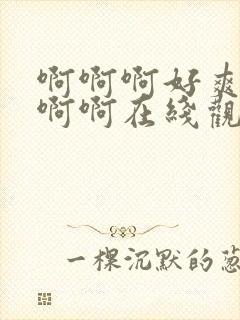 啊啊啊好爽
啊啊在綫觀
一棵沉默的葱